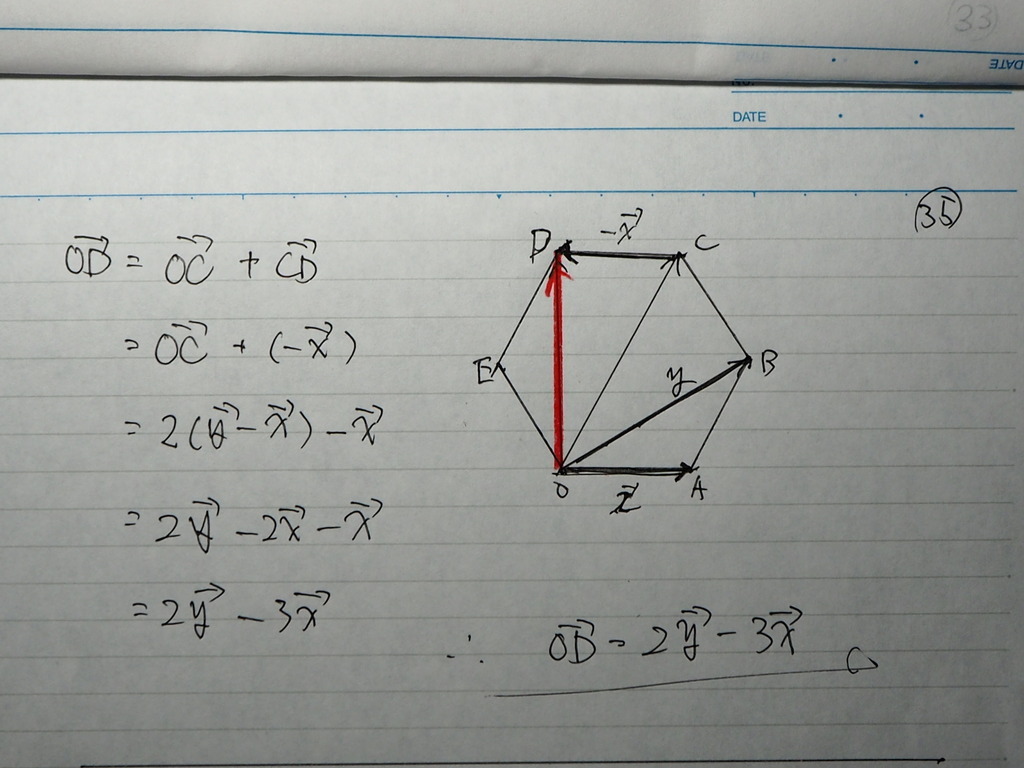 (33)
DATE
DATE
(35)
OD⃗ = OC⃗ + CD⃗
= OC⃗ + (-x⃗)
= 2(y⃗ - x⃗) - x⃗
= 2y⃗ - 2x⃗ - x⃗
= 2y⃗ - 3x⃗
-x⃗
D C
E y B
O x⃗ A
∴ OD⃗ = 2y⃗ - 3x⃗